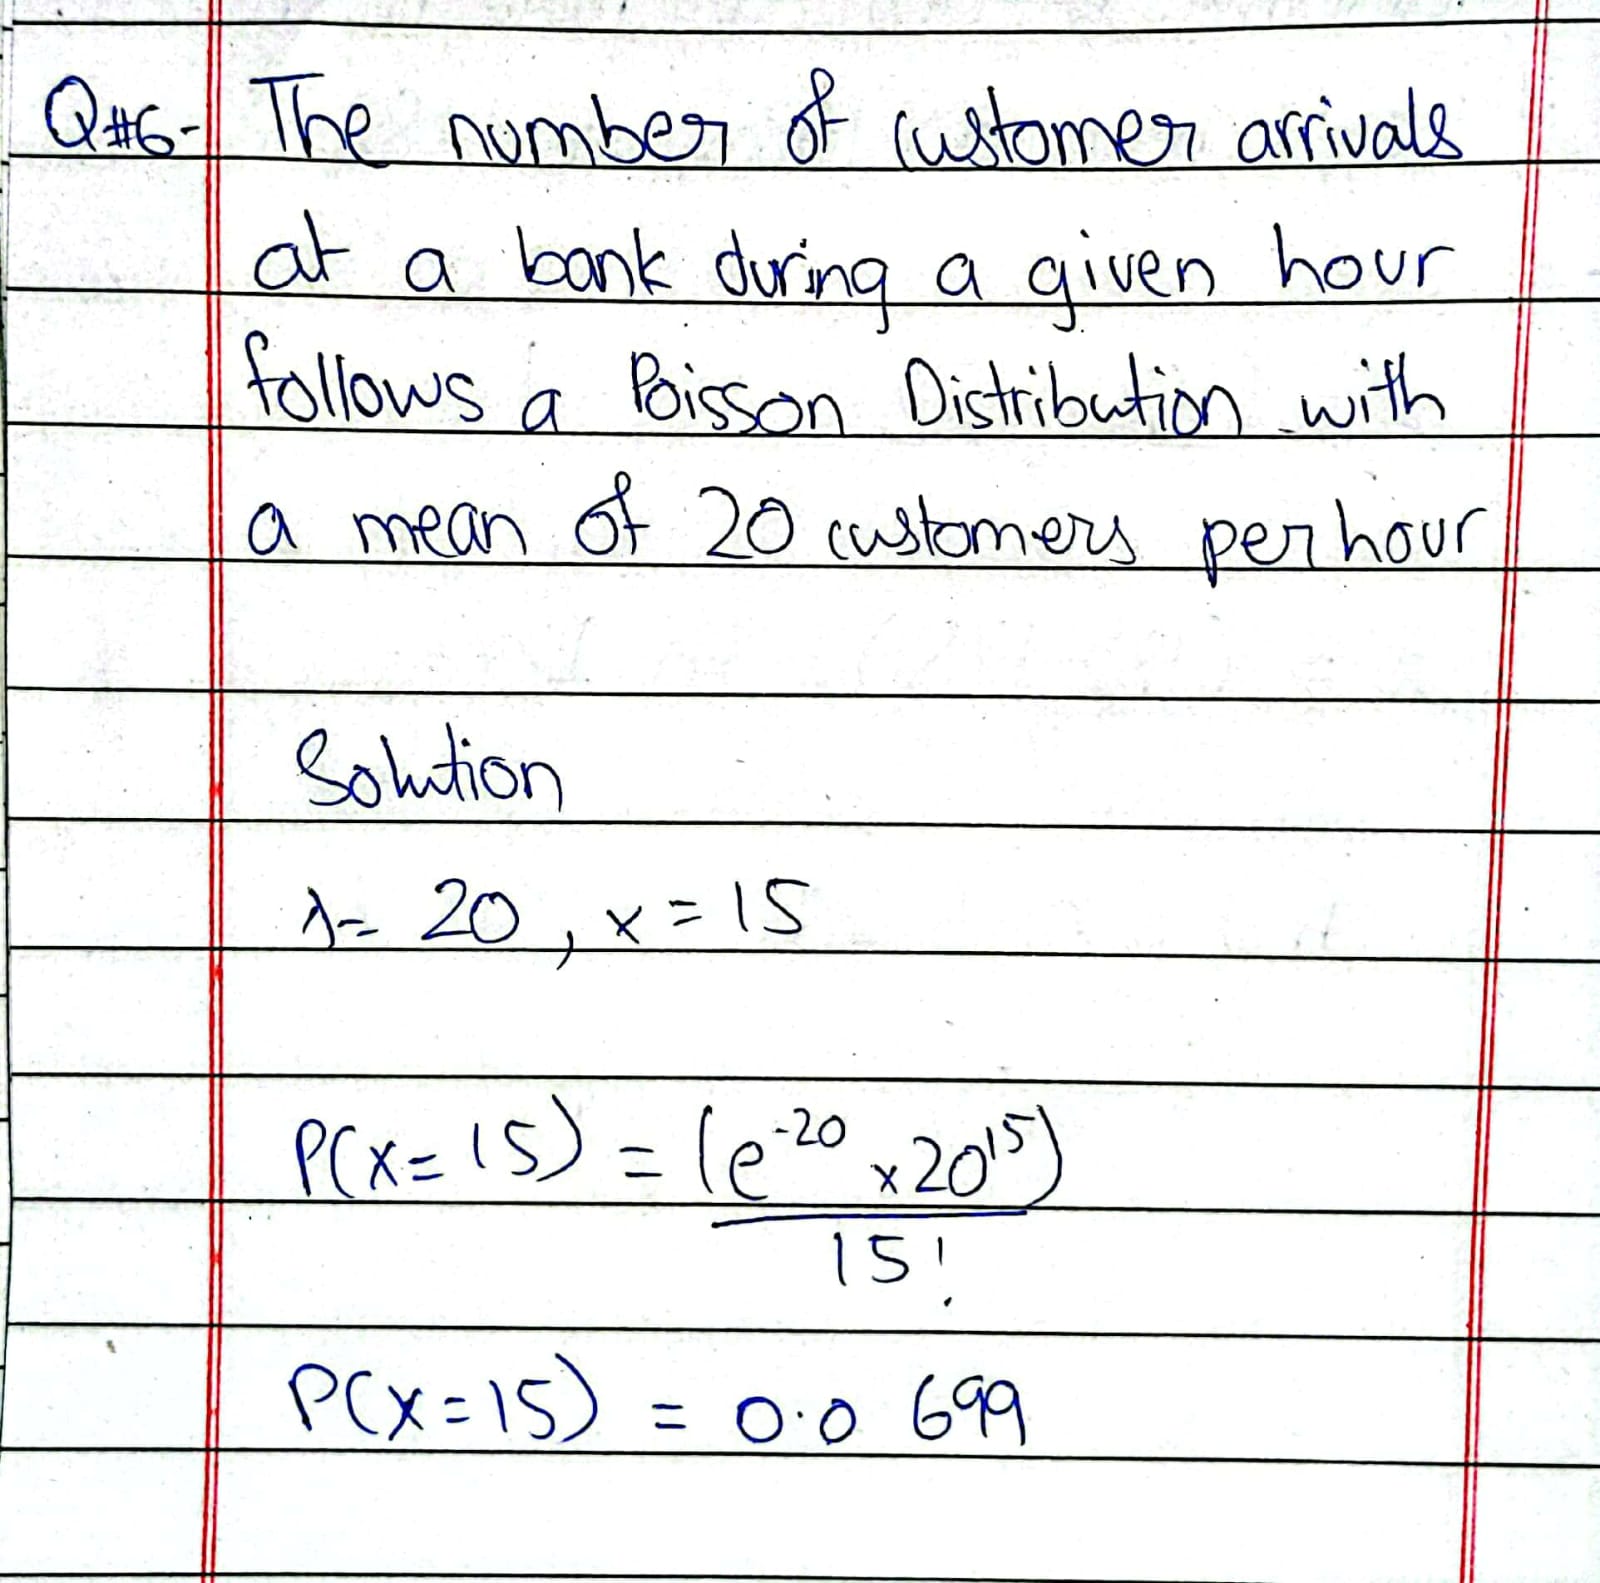 Q#6- The number of customer arrivals
at a bank during a given hour
follows a Poisson Distribution with
a mean of 20 customers per hour
Solution
λ= 20, x = 15
P(x= 15) = (e⁻²⁰ x 20¹⁵)
15!
P(x=15) = 0.0 699